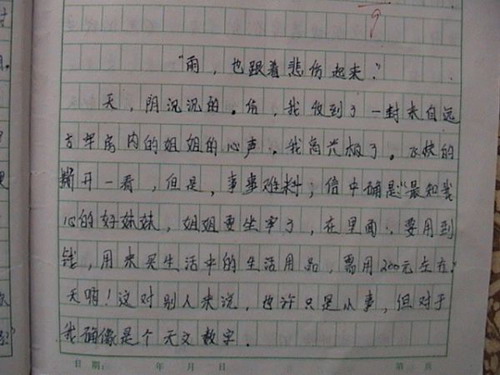 "雨，也跟着悲伤起来."
天，阴沉沉的。但，我收到了一封来自远
方牢房内的姐姐的心声。我高兴极了。飞快的
撕开一看，但是，事事难料；信中确是"最知我
心的好妹妹，姐姐要坐牢了，在里面，要用到
钱，用来买生活中的生活用品，需用200元左右.
天哪！这对别人来说，也许只是小事，但对于
我确像是个天文数字.
日期： 年 月 日 第 页